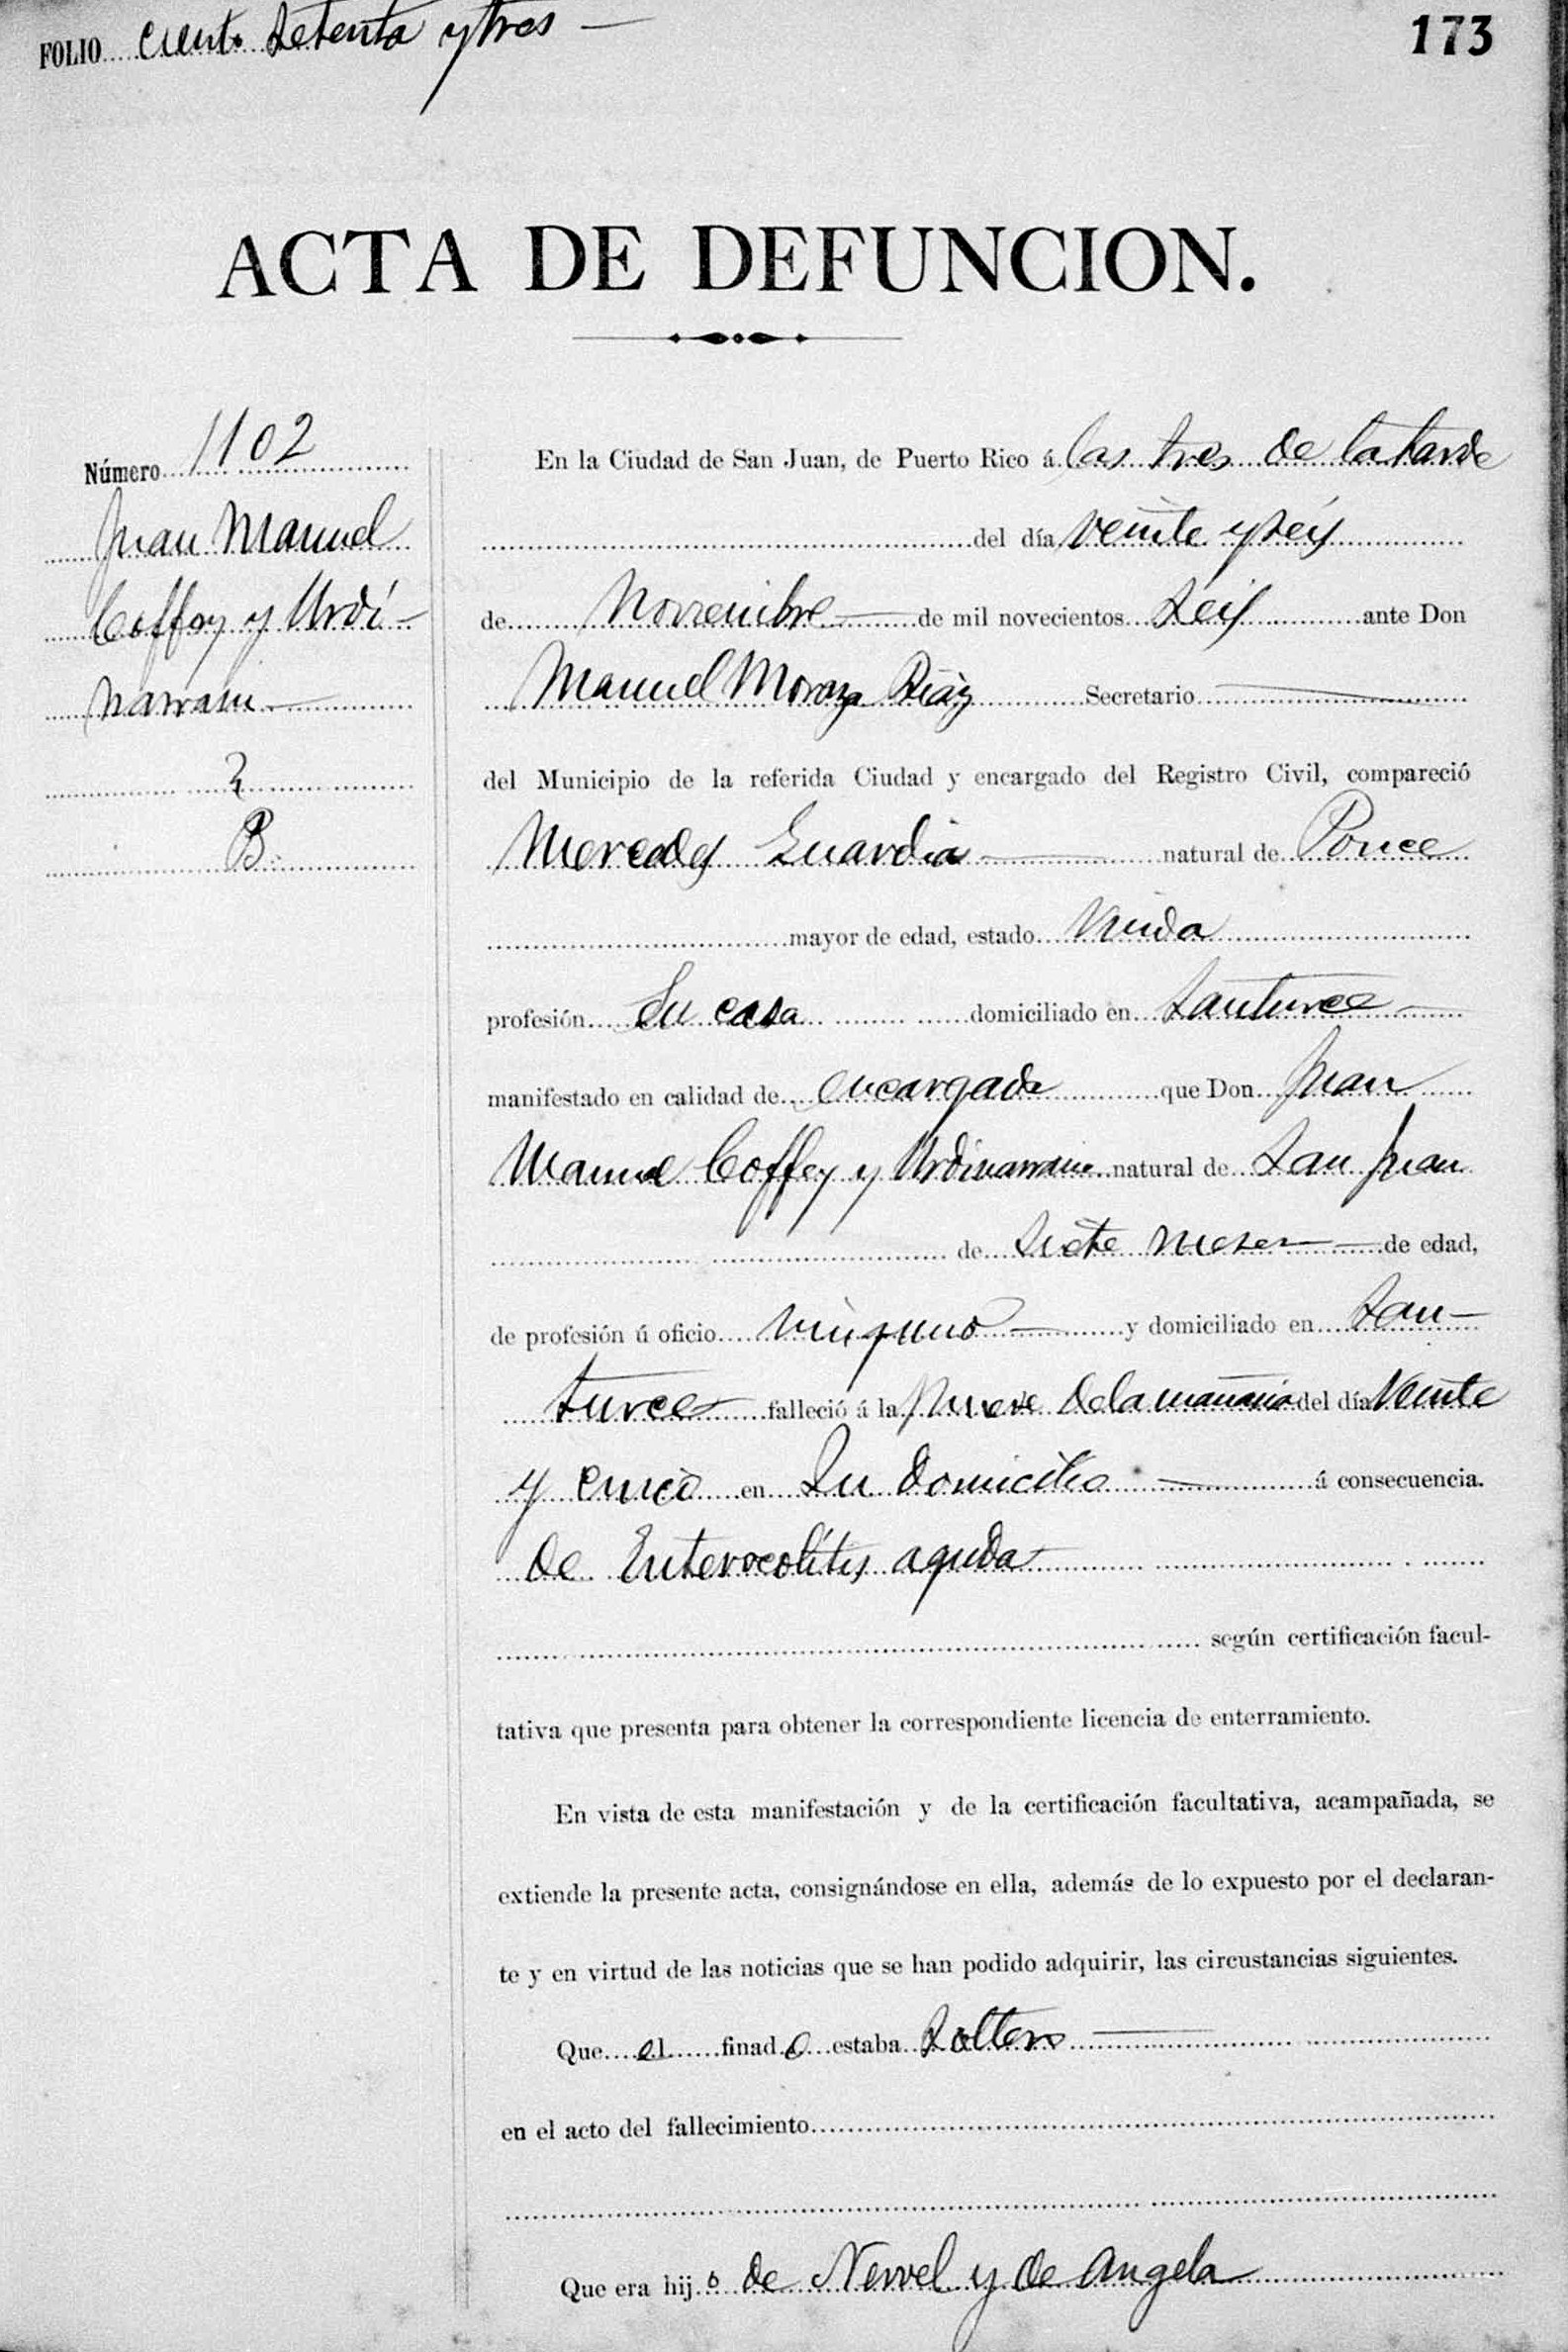 FOLIO Ciento Setenta y tres
173
ACTA DE DEFUNCION.
Número 1102
Juan Manuel
Coffey y Urdi-
narrain
B
En la Ciudad de San Juan, de Puerto Rico á las tres de la tarde
del día veinte y seis
de Noviembre de mil novecientos Seis ante Don
Manuel Moraza Diaz Secretario
del Municipio de la referida Ciudad y encargado del Registro Civil, compareció
Mercedes Guardia natural de Ponce
mayor de edad, estado Viuda
profesión Su casa domiciliado en Santurce
manifestado en calidad de encargada que Don Juan
Manuel Coffey y Urdinarrain natural de San Juan
de Siete meses de edad,
de profesión ú oficio ninguno y domiciliado en San-
turce falleció á la nueve de la mañana del día Veinte
y cinco en Su domicilio á consecuencia.
de Enterocolitis aguda
según certificación facul-
tativa que presenta para obtener la correspondiente licencia de enterramiento.
En vista de esta manifestación y de la certificación facultativa, acampañada, se
extiende la presente acta, consignándose en ella, además de lo expuesto por el declaran-
te y en virtud de las noticias que se han podido adquirir, las circustancias siguientes.
Que el finado estaba Soltero
en el acto del fallecimiento
Que era hijo de Newel y de Angela